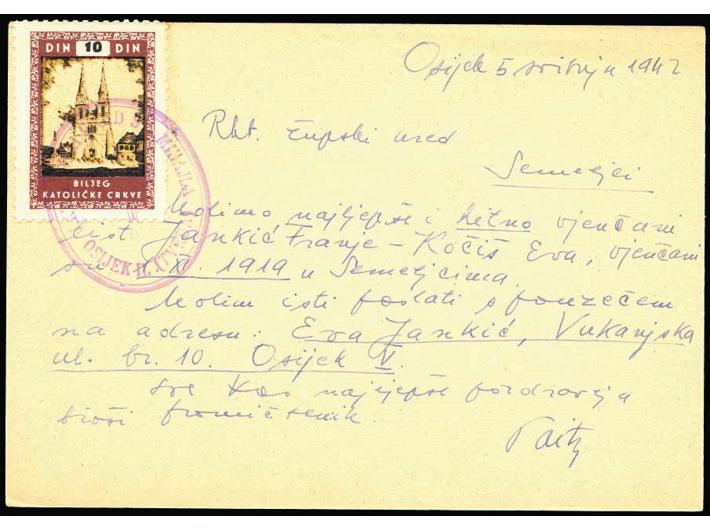 DIN 10 DIN
BILJEG
KATOLIČKE CRKVE
OSIJEK
Osijek 5 svibnja 1942
Rkt. župski ured
Semeljci
Molimo najljepše i hitno vjenčani
list Jankić Franje - Kočiš Eva, vjenčani
su XI. 1919 u Semeljcima.
Molim isti poslati s pouzećem
na adresu: Eva Jankić, Vukarijska
ul. br. 10. Osijek V.
sve kao najljepše pozdravlja